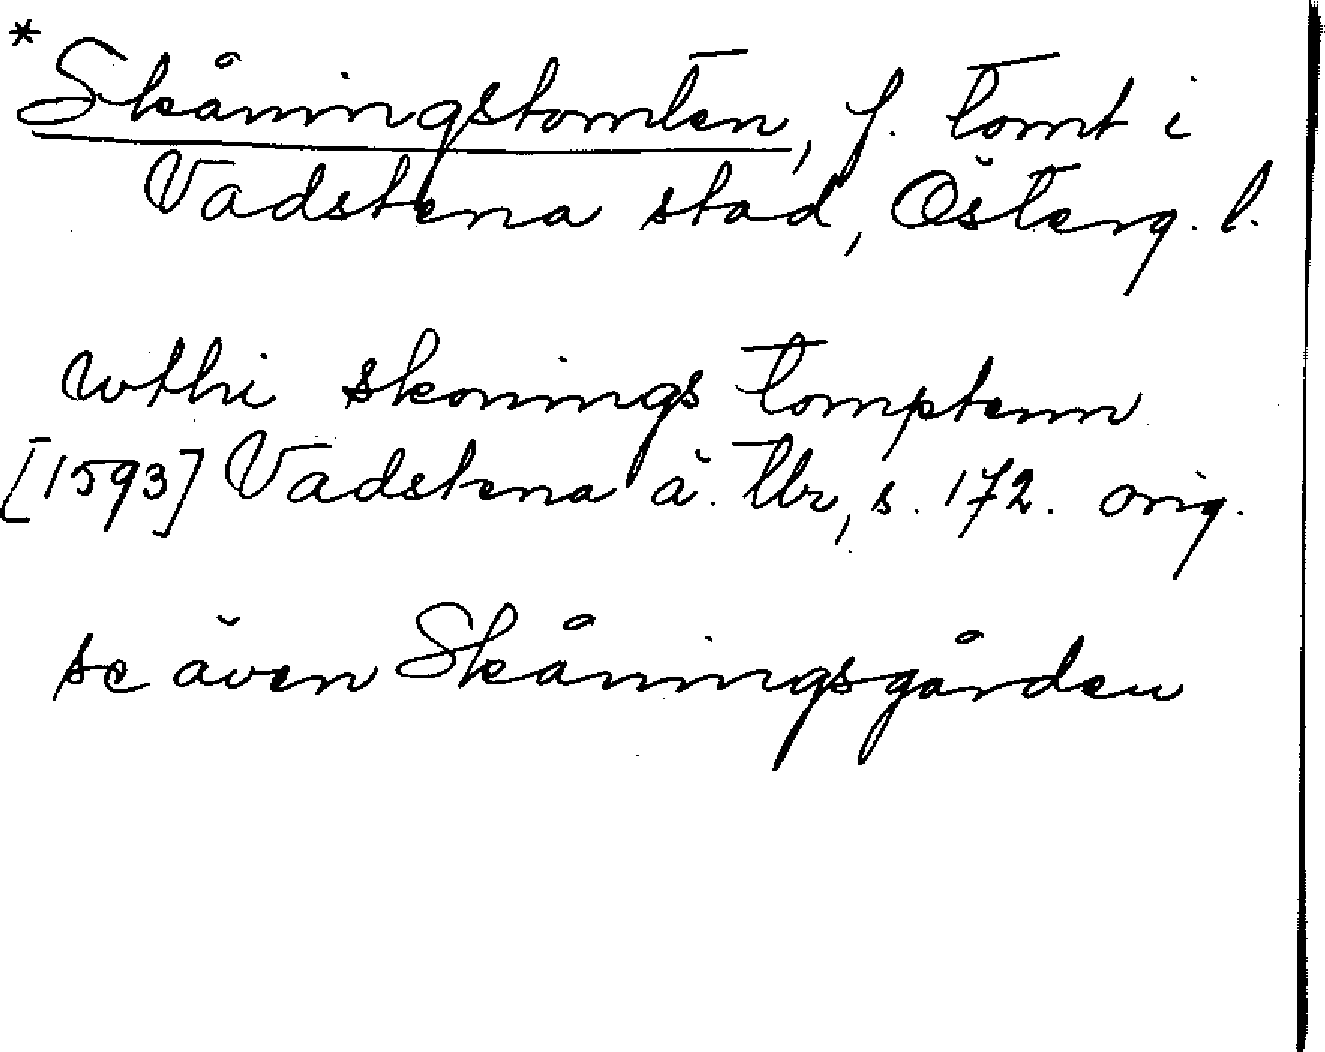 *Skåningstomten, f. tomt i
Vadstena stad, Österg. l.
wthi skonings tomptenn
[1593] Vadstena ä. tbr, s. 172. orig.
se även Skåningsgården